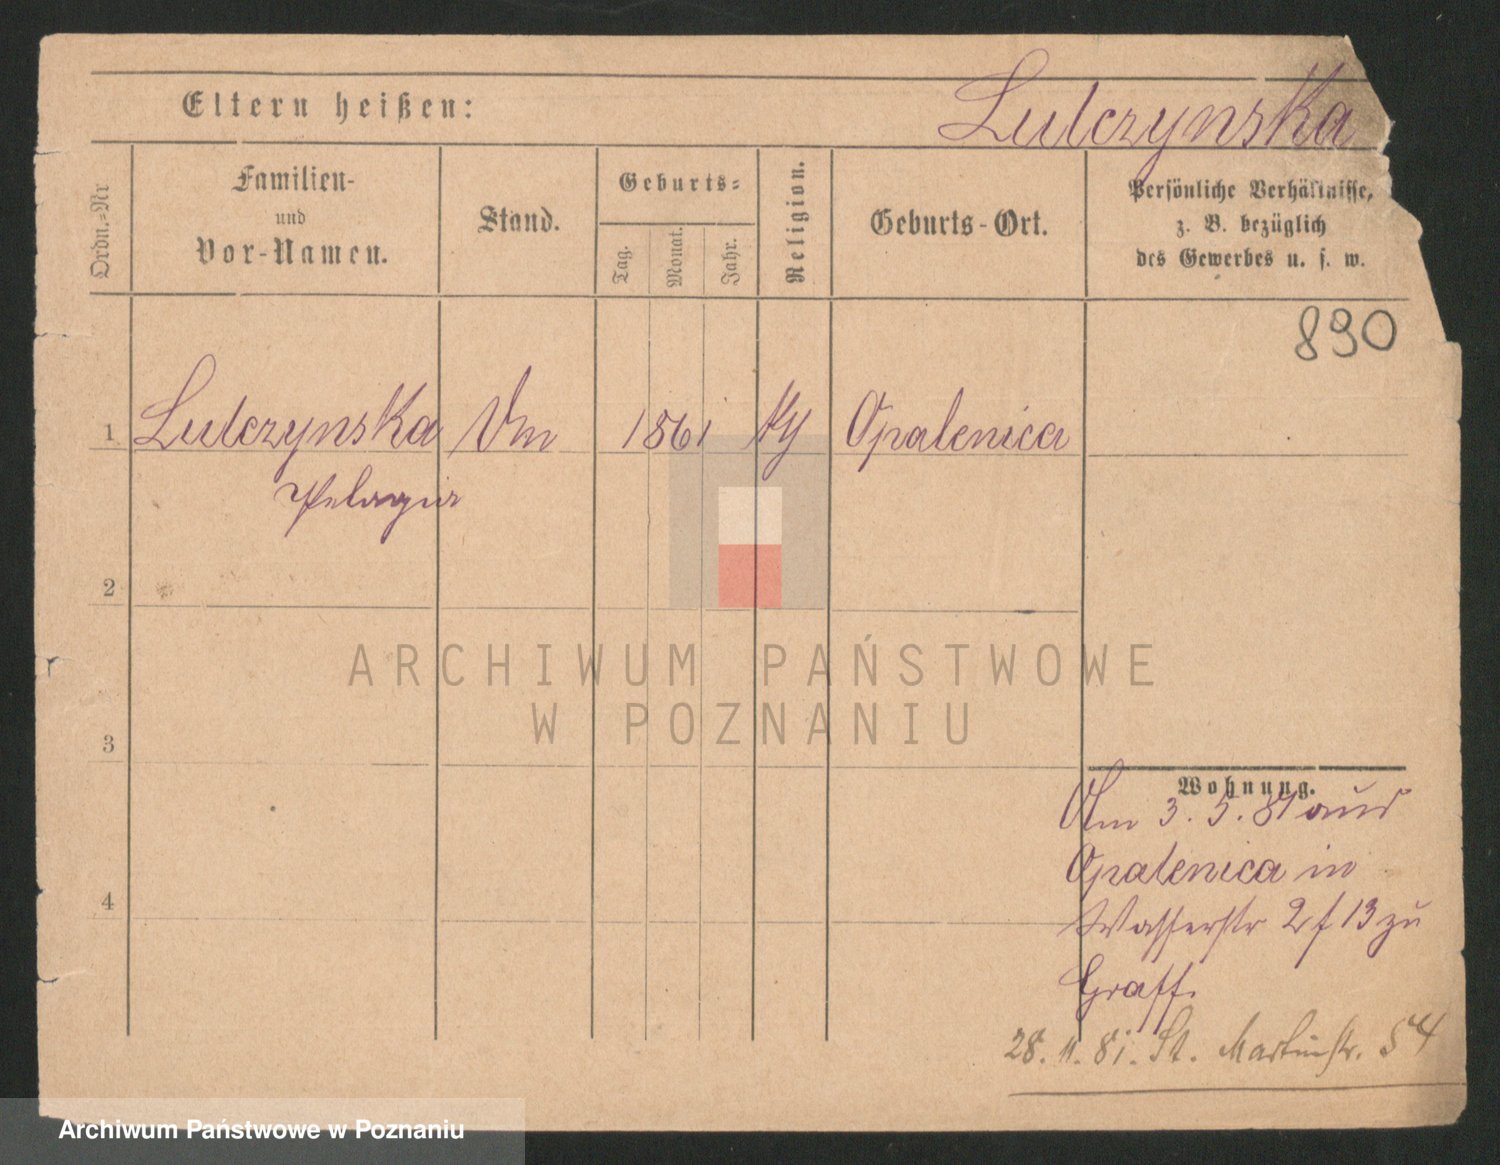 Eltern heißen:
Lulczynska
Ordn.-Nr
Familien-
und
Vor-Namen.
Stand.
Geburts-
Tag.
Monat.
Jahr.
Religion.
Geburts-Ort.
Persönliche Verhältnisse,
z. B. bezüglich
des Gewerbes u. s. w.
890
1 Lulczynska 1861 Opalenica
Pelagia
2
3
4
ARCHIWUM PAŃSTWOWE
W POZNANIU
Wohnung.
Am 3. 5. 81 aus
Opalenica in
Wasserstr 2 f 13 zu
Graff.
28. 11. 81. St. Martinstr. 54
Archiwum Państwowe w Poznaniu